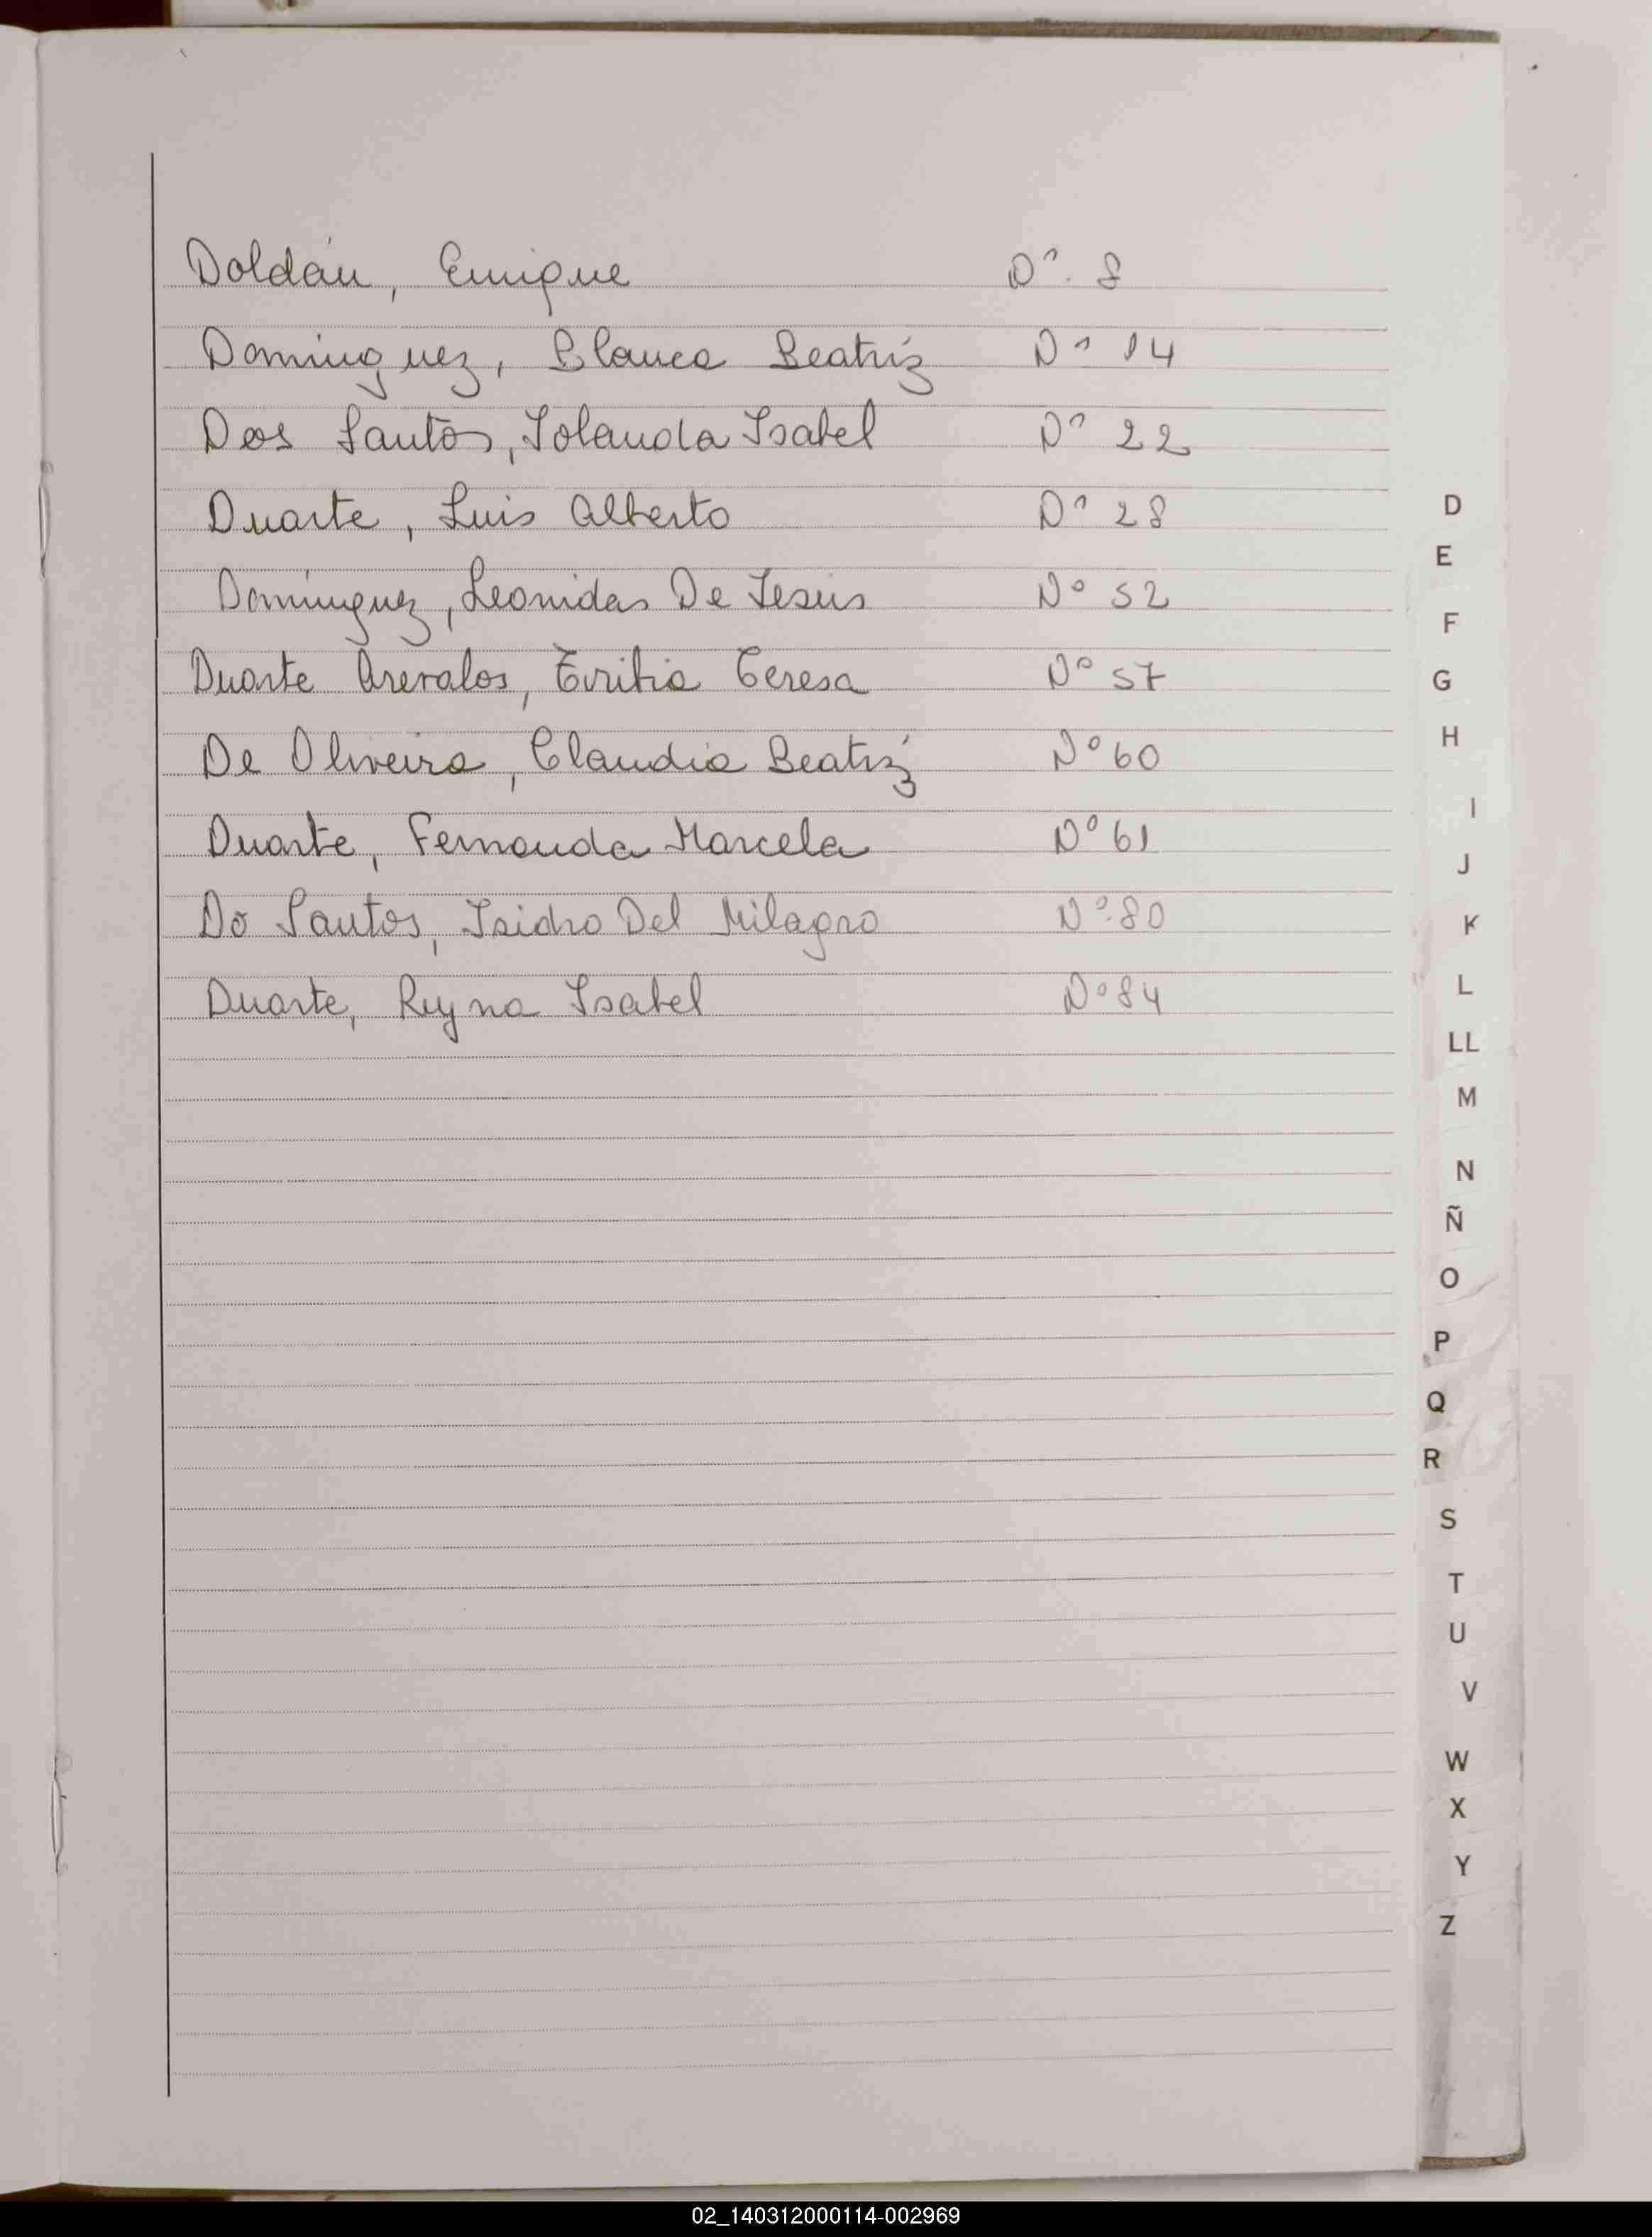 Doldán, Enrique Nº. 8
Dominguez, Blanca Beatríz Nº 14
Dos Santos, Iolanda Isabel Nº 22
Duarte, Luis Alberto Nº 28
Domínguez, Leonidas De Jesús Nº 52
Duarte Arevalos, Teresa Nº 57
De Oliveira, Claudia Beatríz Nº 60
Duarte, Fernanda Marcela Nº 61
Do Santos, Isidro Del Milagro Nº 80
Duarte, Reyna Isabel Nº 84
D
E
F
G
H
I
J
K
L
LL
M
N
Ñ
O
P
Q
R
S
T
U
V
W
X
Y
Z
02_140312000114-002969